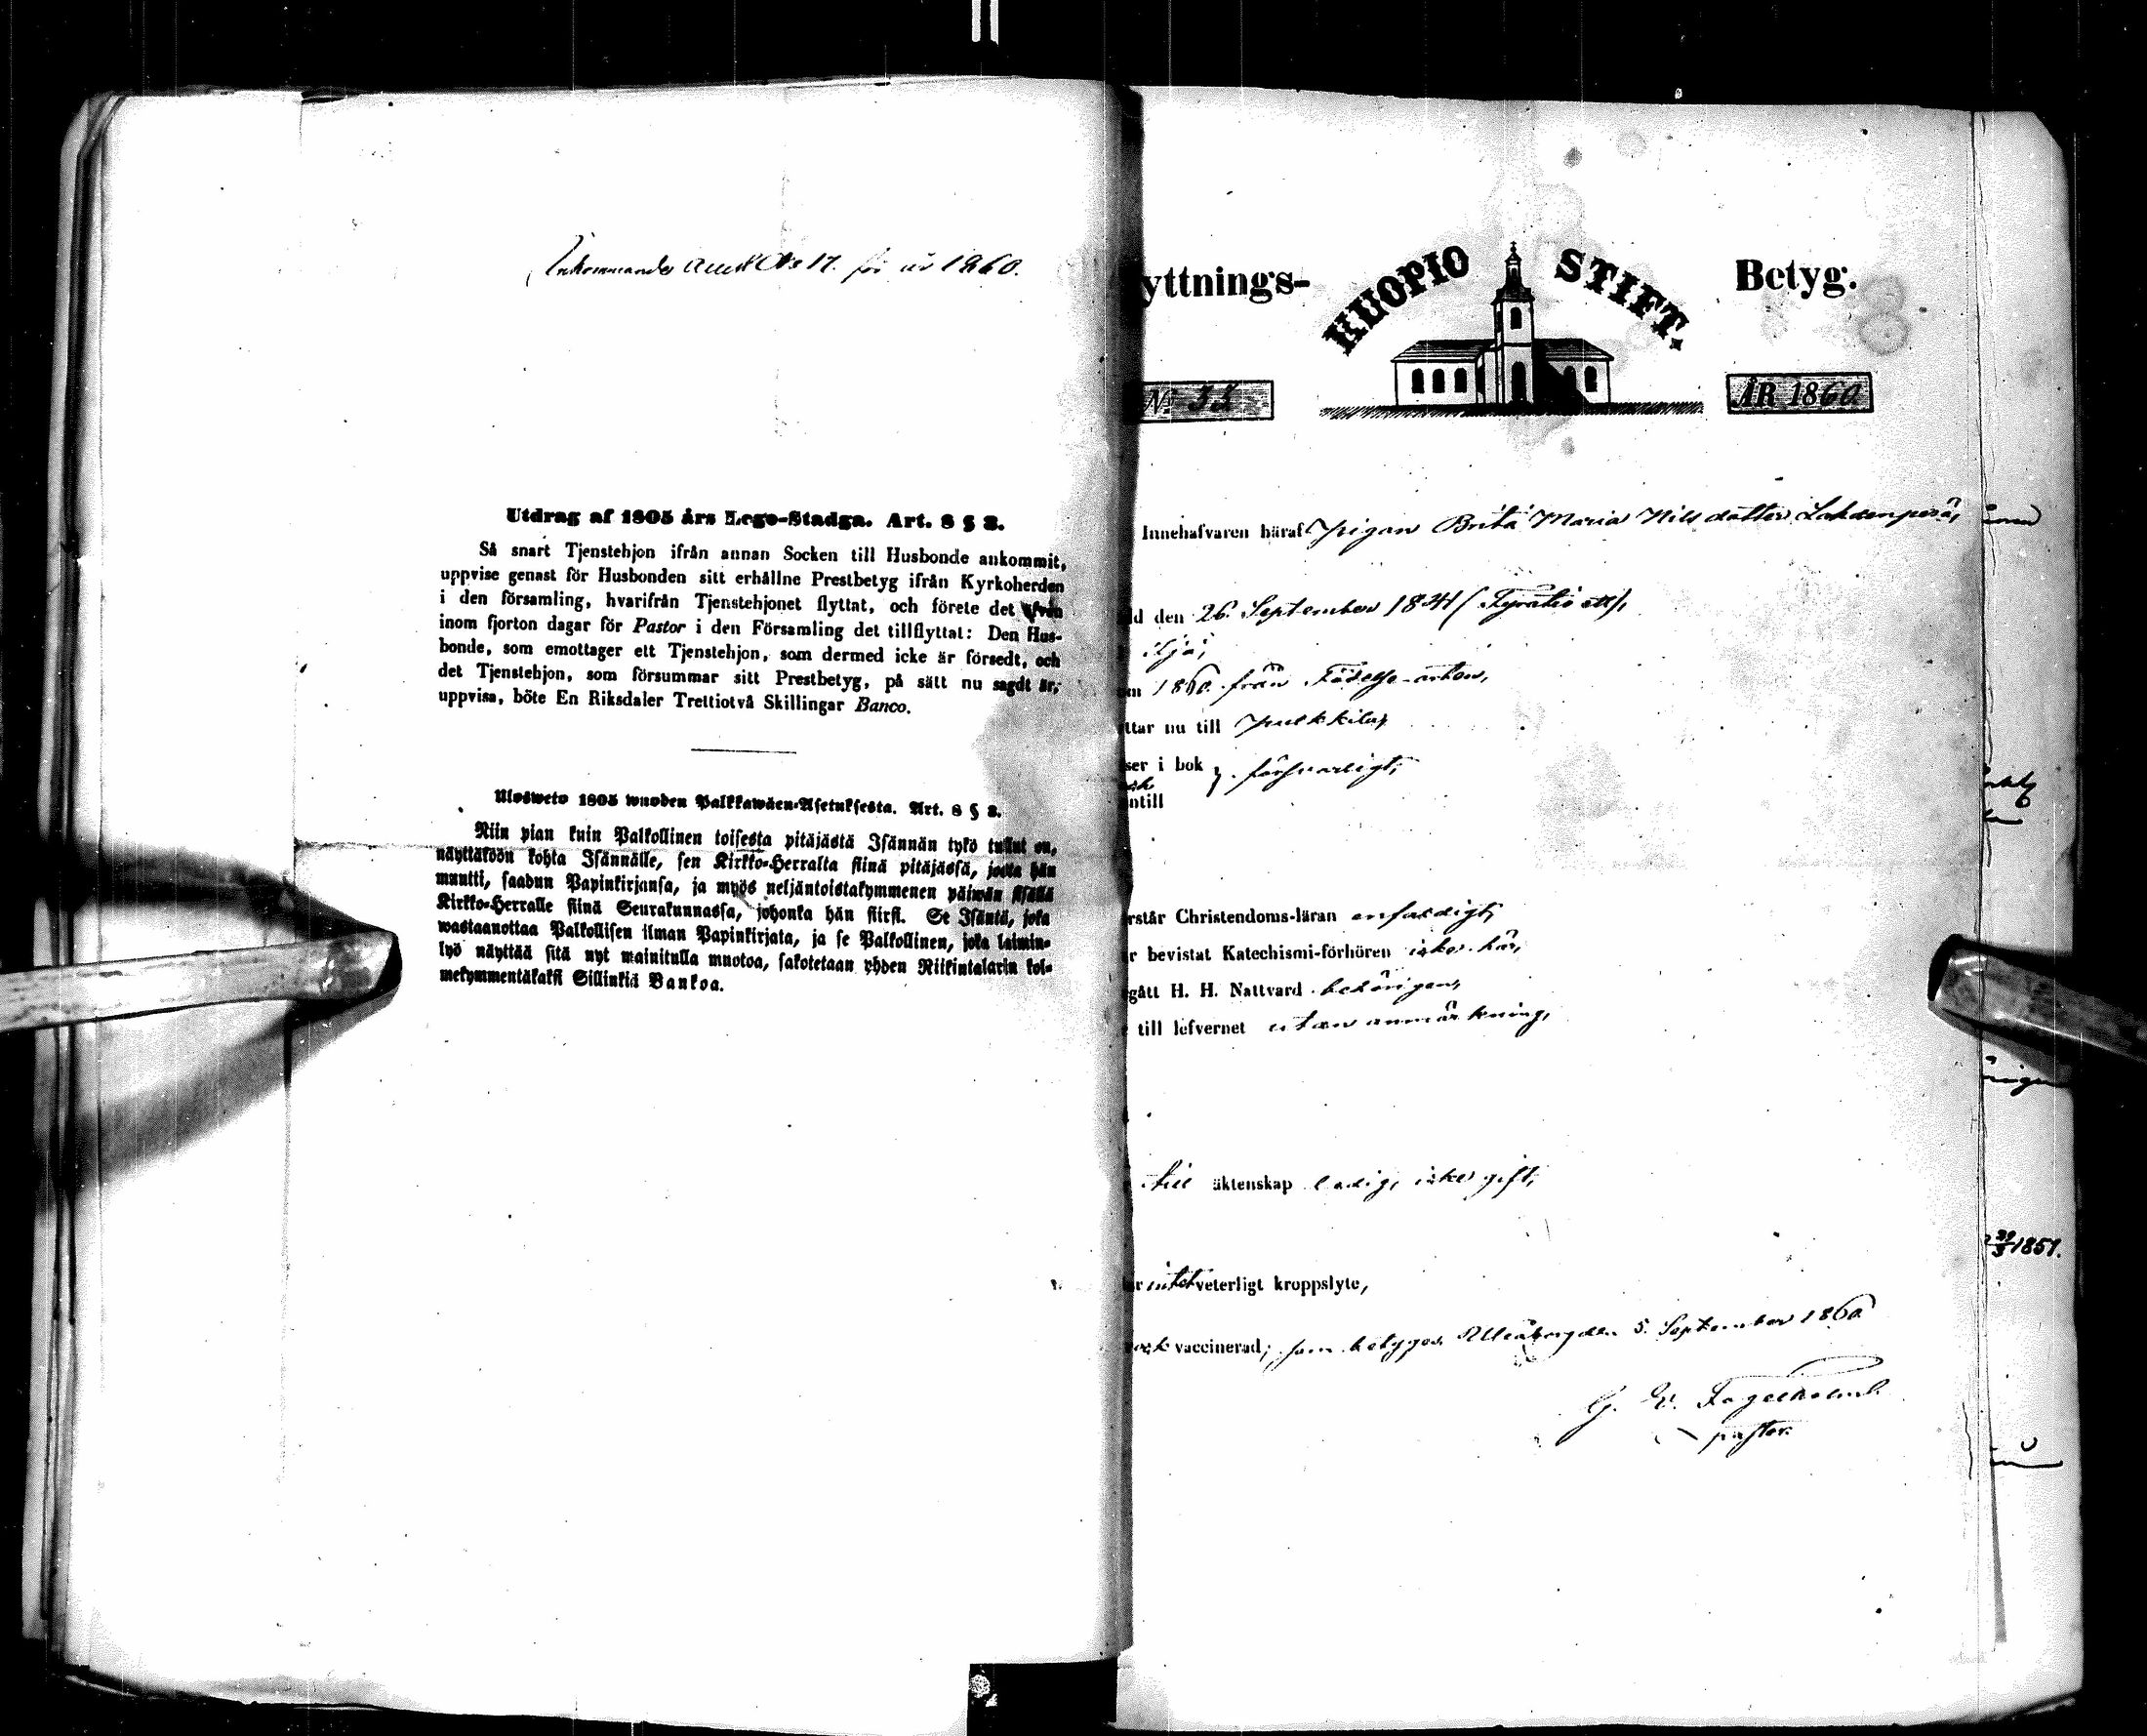 Inkommande attest No 17. för år 1860.
Utdrag af 1805 års Lego-Stadga. Art. 8 § 2.
Så snart Tjenstehjon ifrån annan Socken till Husbonde ankommit,
uppvise genast för Husbonden sitt erhållne Prestbetyg ifrån Kyrkoherden
i den församling, hvarifrån Tjenstehjonet flyttat, och förete det äfven
inom fjorton dagar för Pastor i den Församling det tillflyttat: Den Hus-
bonde, som emottager ett Tjenstehjon, som dermed icke är försedt, och
det Tjenstehjon, som försummar sitt Prestbetyg, på sätt nu sagdt är,
uppvisa, böte En Riksdaler Trettiotvå Skillingar Banco.
Ulosweto 1805 wuoden Palkkawäen-Asetuksesta. Art. 8 § 2.
Niin pian kuin Palkollinen toisesta pitäjästä Isännän tykö tullut on,
näyttäköön kohta Isännälle, sen Kirkko-Herralta siinä pitäjässä, josta hän
muutti, saadun Papinkirjansa, ja myös neljäntoistakymmenen päiwän sisällä
Kirkko-Herralle siinä Seurakunnassa, johonka hän siirsi. Se Isäntä, joka
wastaanottaa Palkollisen ilman Papinkirjata, ja se Palkollinen, joka laimin-
lyö näyttää sitä nyt mainitulla muotoa, sakotetaan yhden Riikintalarin kol-
mekymmentäkaksi Sillinkiä Bankoa.
yttnings- KUOPIO STIFT. Betyg.
No 33 ÅR 1860
Innehafvaren häraf pigan Brita Maria Nils dotter Lakdenperä,
dd den 26. September 1841 (Fyratio ett),
1860. från Födelse-orten,
ttar nu till Pulkkila,
ser i bok }. försvarligt,
ntill
rstår Christendoms-läran enfaldigt,
r bevistat Katechismi-förhören icke här,
gått H. H. Nattvard behörigen,
till lefvernet utan anmärkning,
till äktenskap ledig, icke gift,
r intet veterligt kroppslyte,
ock vaccinerad; som betygas. Uleåborg den 5. September 1860
pastor.
1851.